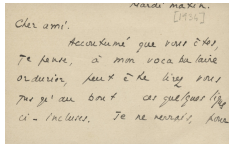 Mardi matin.
[1934]
Cher ami.
Accoutumé que vous êtes,
je pense, à mon vocabulaire
ordurier, peut être lirez vous
jusqu'au bout ces quelques lignes
ci-incluses. Je ne verrais, pour